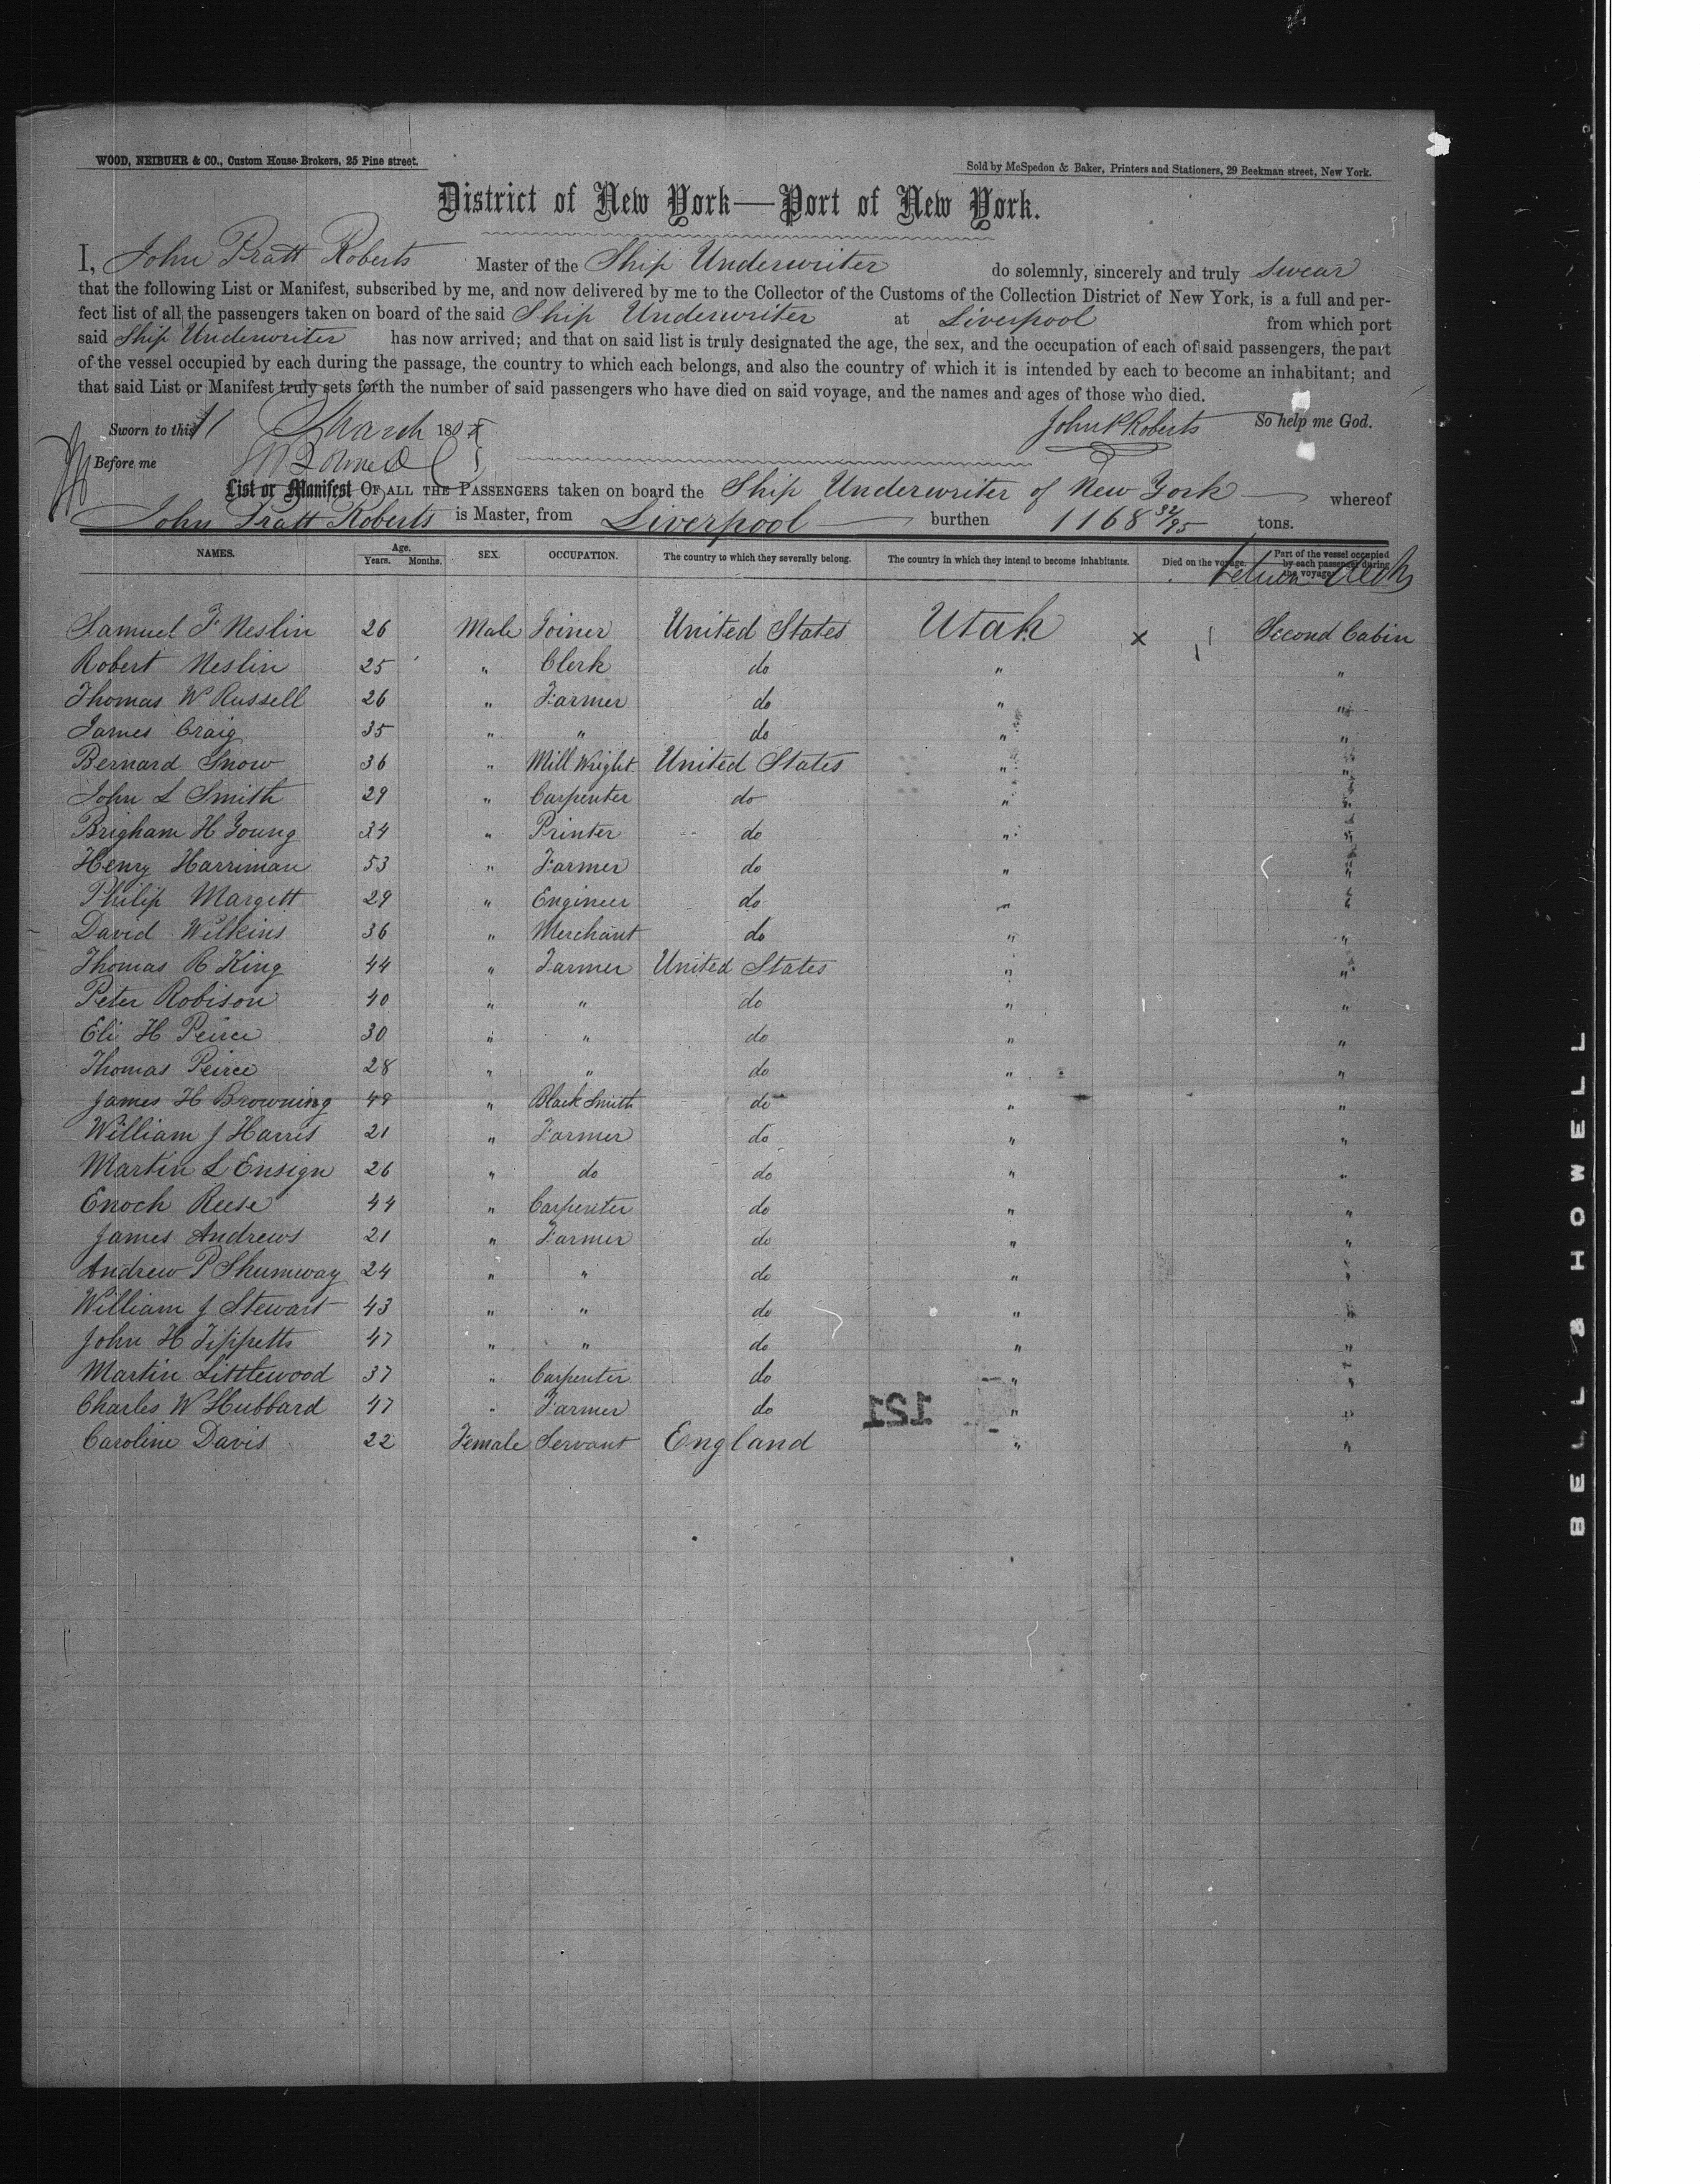 WOOD, NEIBUHR & CO., Custom House Brokers, 25 Pine street.
Sold by McSpedon & Baker, Printers and Stationers, 29 Beekman street, New York.
District of New York—Port of New York.
I, John Pratt Roberts Master of the Ship Underwriter do solemnly, sincerely and truly swear
that the following List or Manifest, subscribed by me, and now delivered by me to the Collector of the Customs of the Collection District of New York, is a full and per-
fect list of all the passengers taken on board of the said Ship Underwriter at Liverpool from which port
said Ship Underwriter has now arrived; and that on said list is truly designated the age, the sex, and the occupation of each of said passengers, the part
of the vessel occupied by each during the passage, the country to which each belongs, and also the country of which it is intended by each to become an inhabitant; and
that said List or Manifest truly sets forth the number of said passengers who have died on said voyage, and the names and ages of those who died.
Sworn to this 11 March John P Roberts So help me God.
Before me
List or Manifest OF ALL THE PASSENGERS taken on board the Ship Underwriter of New York whereof
John Pratt Roberts is Master, from Liverpool burthen 1168 32/95 tons.
NAMES. Age. Years. Months. SEX. OCCUPATION. The country to which they severally belong. The country in which they intend to become inhabitants. Died on the voyage. Part of the vessel occupied by each passenger during the voyage.
Samuel F Neslin 26 Male Joiner United States Utah x Second Cabin
Robert Neslin 25 " Clerk do " "
Thomas W Russell 26 " Farmer do " "
James Craig 35 " " do " "
Bernard Snow 36 " Mill Wright United States " "
John L Smith 29 " Carpenter do " "
Brigham H Young 34 " Printer do " "
Henry Harriman 53 " Farmer do " "
Philip Margett 29 " Engineer do " "
David Wilkins 36 " Merchant do " "
Thomas R King 44 " Farmer United States " "
Peter Robison 40 " " do " "
Eli H Peirce 30 " " do " "
Thomas Peirce 28 " " do " "
James H Browning 49 " Black Smith do " "
William J Harris 21 " Farmer do " "
Martin L Ensign 26 " do do " "
Enoch Reese 44 " Carpenter do " "
James Andrews 21 " Farmer do " "
Andrew P Shumway 24 " " do " "
William J Stewart 43 " " do " "
John H Tippetts 47 " " do " "
Martin Littlewood 37 " Carpenter do " "
Charles W Hubbard 47 " Farmer do " "
121
Caroline Davis 22 Female Servant England " "
BELL & HOWELL